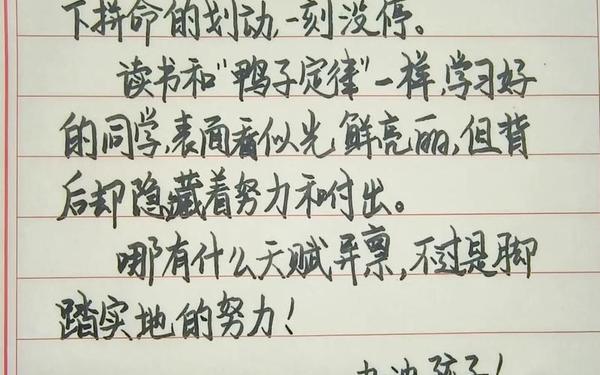 下拼命的划动,一刻没停。
读书和"鸭子定律"一样,学习好
的同学,表面看似光鲜亮丽,但背
后却隐藏着努力和付出。
哪有什么天赋异禀,不过是脚
踏实地的努力!